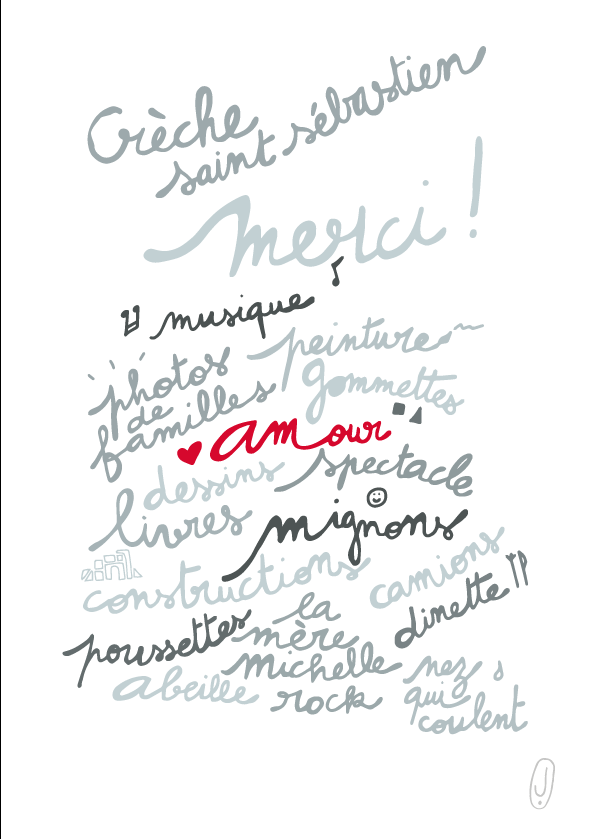 Crèche
saint sébastien
merci !
musique
peinture
photos
de
familles
gommettes
amour
dessins
spectacle
livres
mignons
constructions
camions
dinette
poussettes
la
mère
michelle
abeille
rock
nez
qui
coulent
J